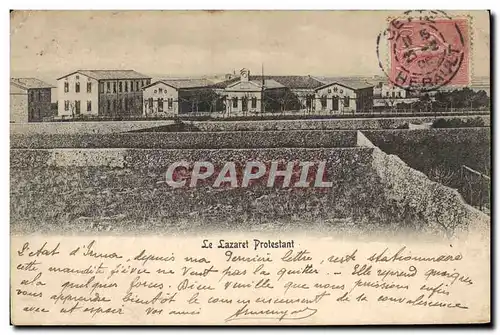 CETTE
HÉRAULT
CARPEDIEM
Le Lazaret Protestant
L'état d'Irma, depuis ma dernière lettre, reste stationnaire
cette maudite fièvre ne veut pas la quitter. — Elle reprend quoique
cela quelques forces. Dieu veuille que nous puissions enfin,
vous apprendre bientôt le commencement de la convalescence
avec cet espoir vos amis